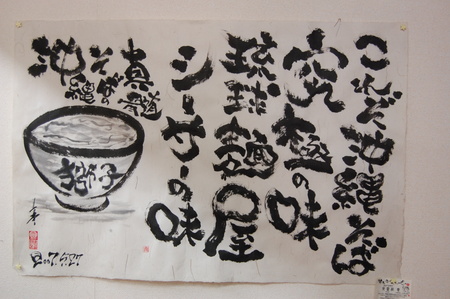 これぞ沖縄そば
究極の味
琉球麺屋
シーサーの味
真骨道
そばの
沖縄
獅子